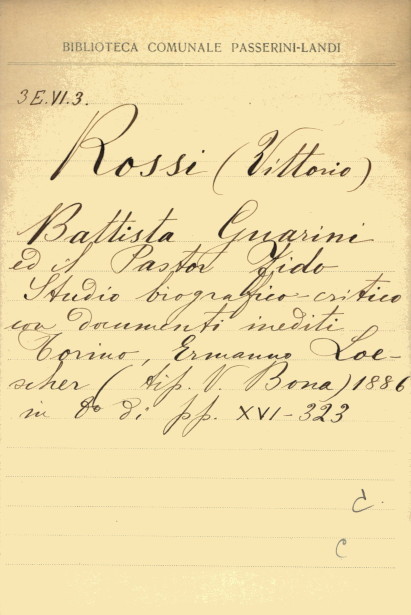 BIBLIOTECA COMUNALE PASSERINI-LANDI
3 E.VI.3.
Rossi (Vittorio)
Battista Guarini
ed il Pastor Fido
Studio biografico-critico
con documenti inediti
Torino, Ermanno Loe-
scher (tip. V. Bona) 1886
in 8º di pp. XVI-323
c.
c